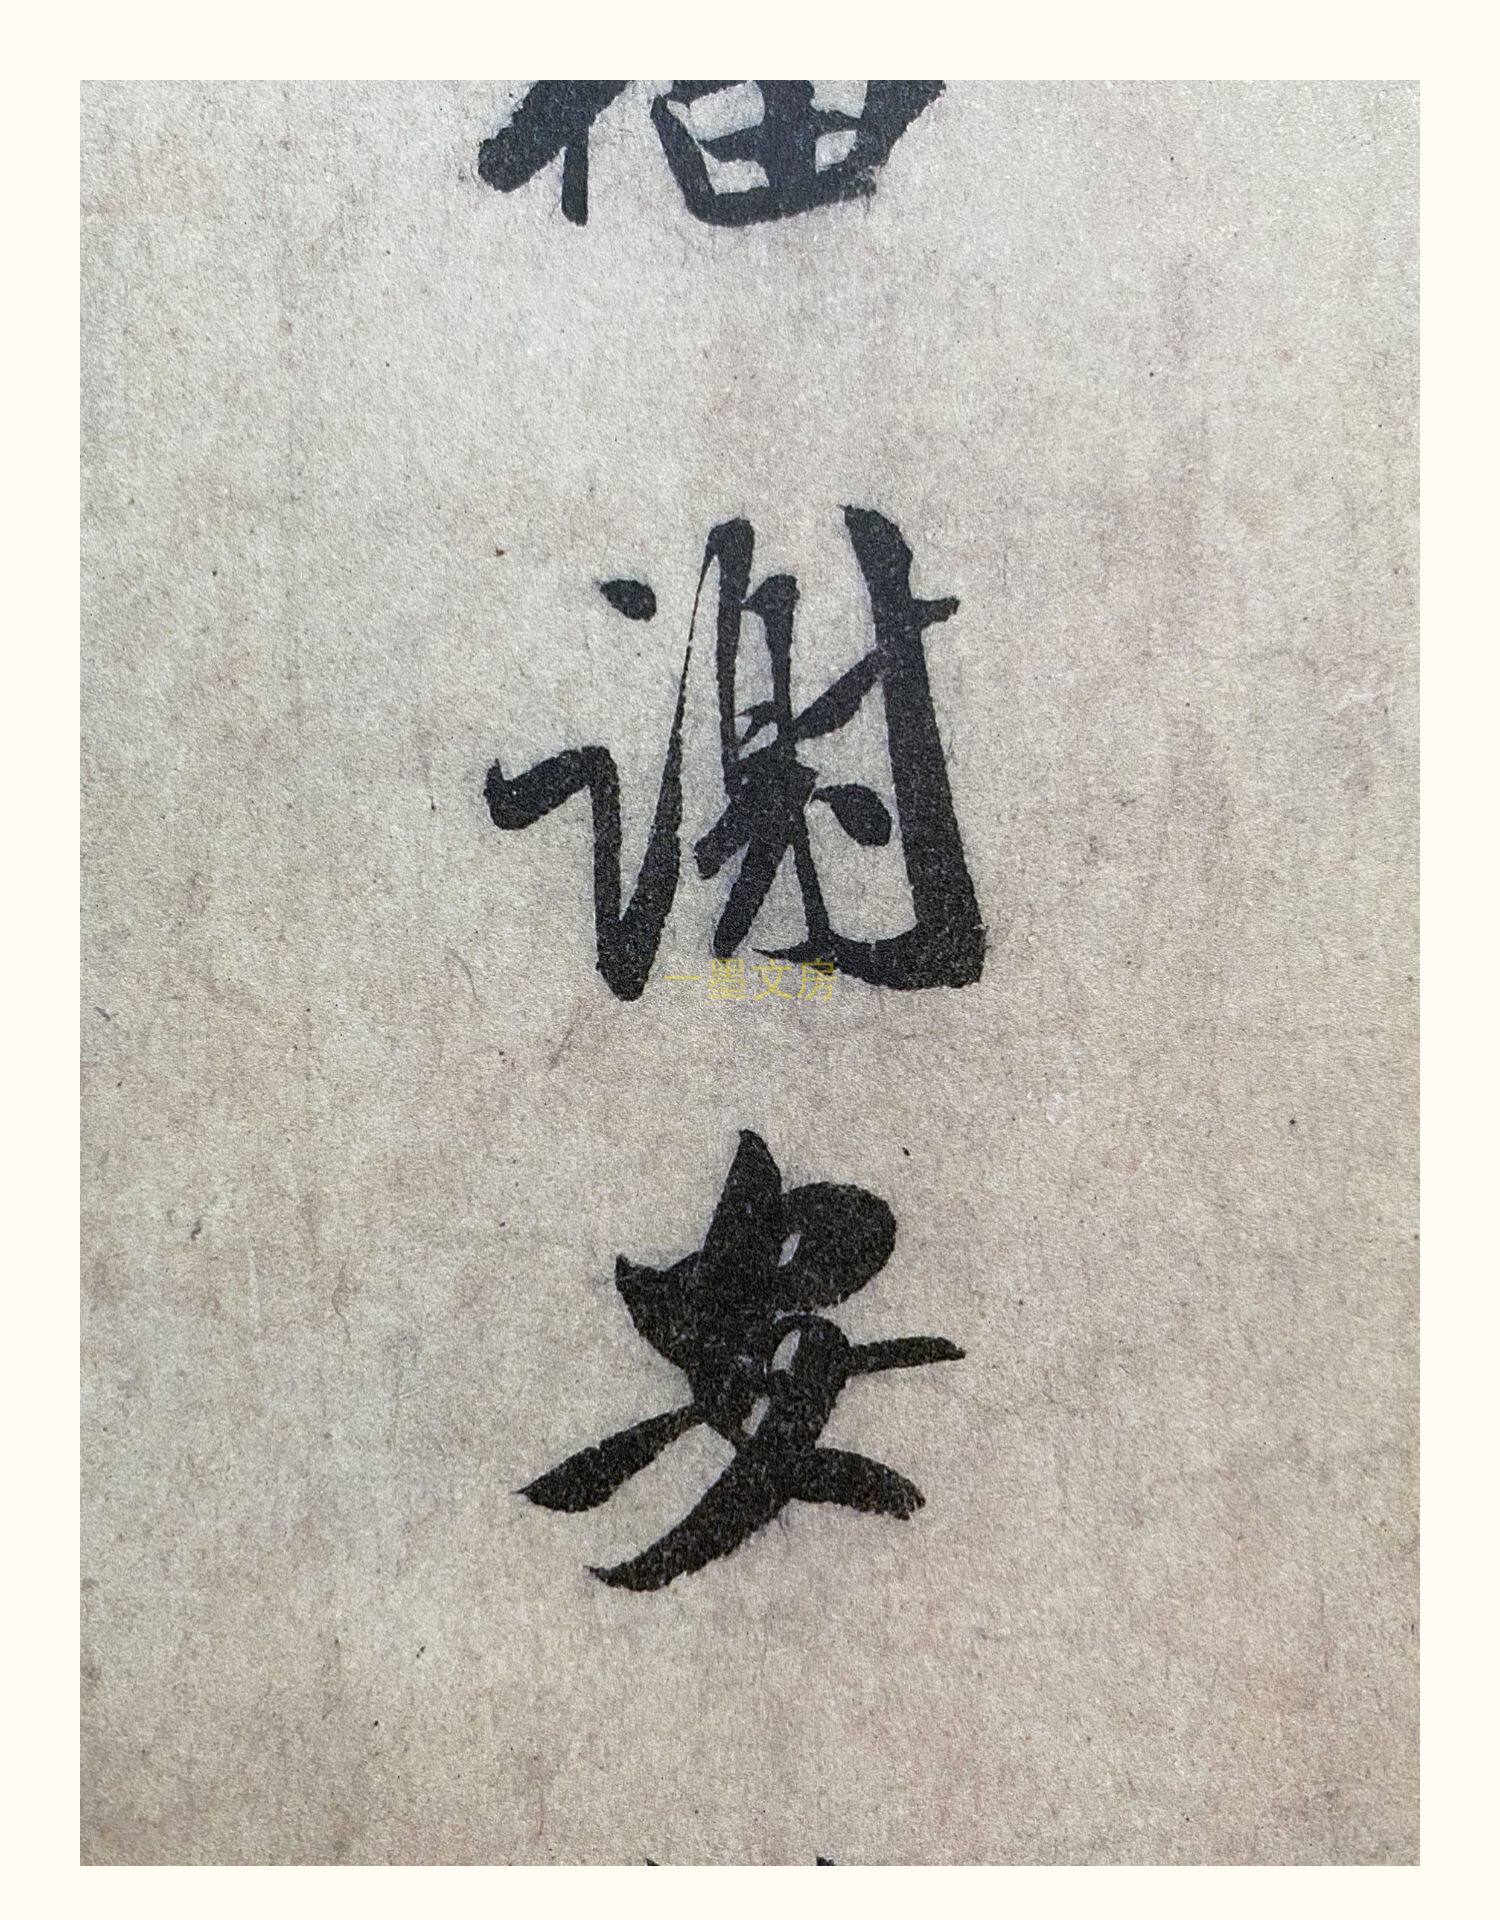 謝安
一墨文房